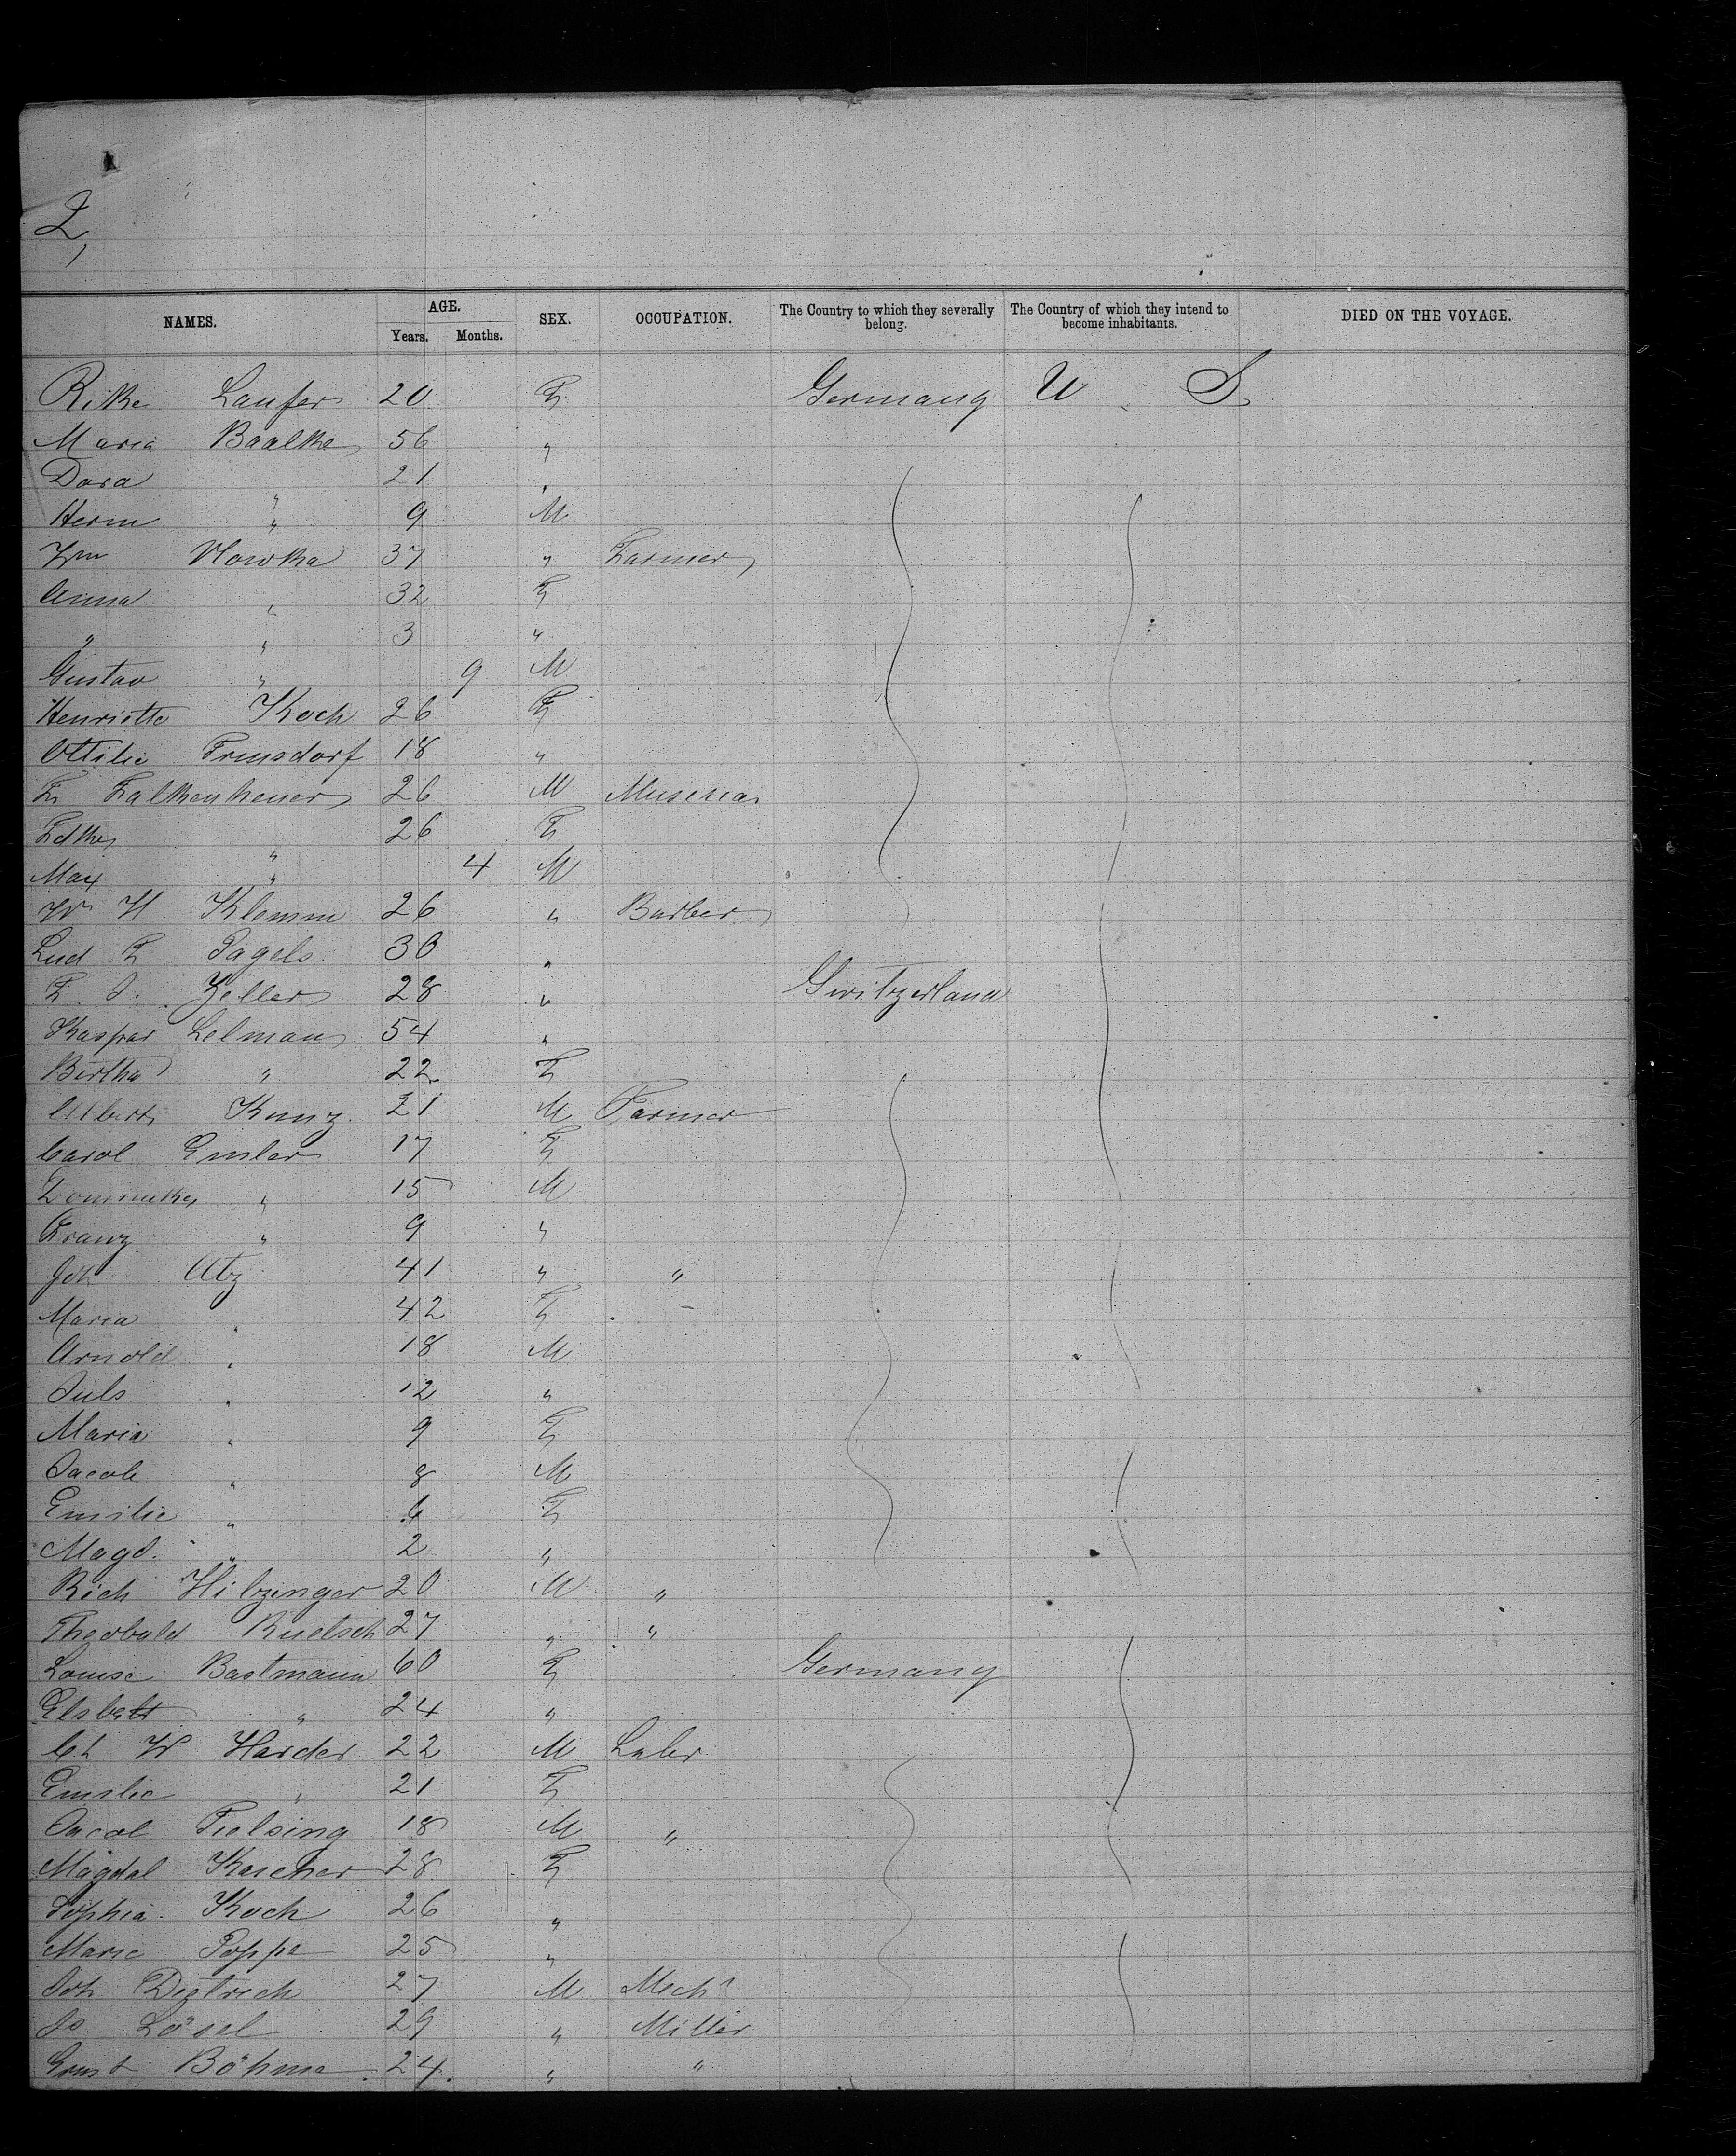 2,
NAMES. AGE. SEX. OCCUPATION. The Country to which they severally belong. The Country of which they intend to become inhabitants. DIED ON THE VOYAGE.
Years. Months.
Rike Laufer 20 F Germany U S
Maria Baalke 56 "
Dora " 21 "
Herm " 9 M
Wm Nowka 37 " Farmer
Anna " 32 F
" " 3 "
Gustav " 9 M
Henriette Koch 26 F
Ottilie 18 "
F Falkenheuer 26 M
" 26 F
Max " 4 M
Wm H Klemm 26 " Barber
Lud F Pagels 30 "
F. J. Zeller 28 " Switzerland
Kaspar Lelman 54 "
Bertha " 22 F
Albert Kunz 21 M Farmer
Carol Emler 17 F
" 15 M
Franz " 9 "
Joh Utz 41 " "
Maria " 42 F
Arnold " 18 M
Juls " 12 "
Maria " 9 F
Jacob " 8 M
Emilie " 6 F
Magd. " 2 "
Rich Hilzinger 20 M "
Theobald Ruetsch 27 " "
Louise Bastmann 60 F Germany
Elsbett " 24 "
Ch W Harder 22 M Labr
Emilie " 21 F
Jacob Fielsing 18 M "
Magdal Kascher 28 F
Sophia Koch 26 "
Marie Poppe 25 "
Joh Dietrich 27 M Mech
Jo Lösel 29 " Miller
Ernst Böhme 24 " "